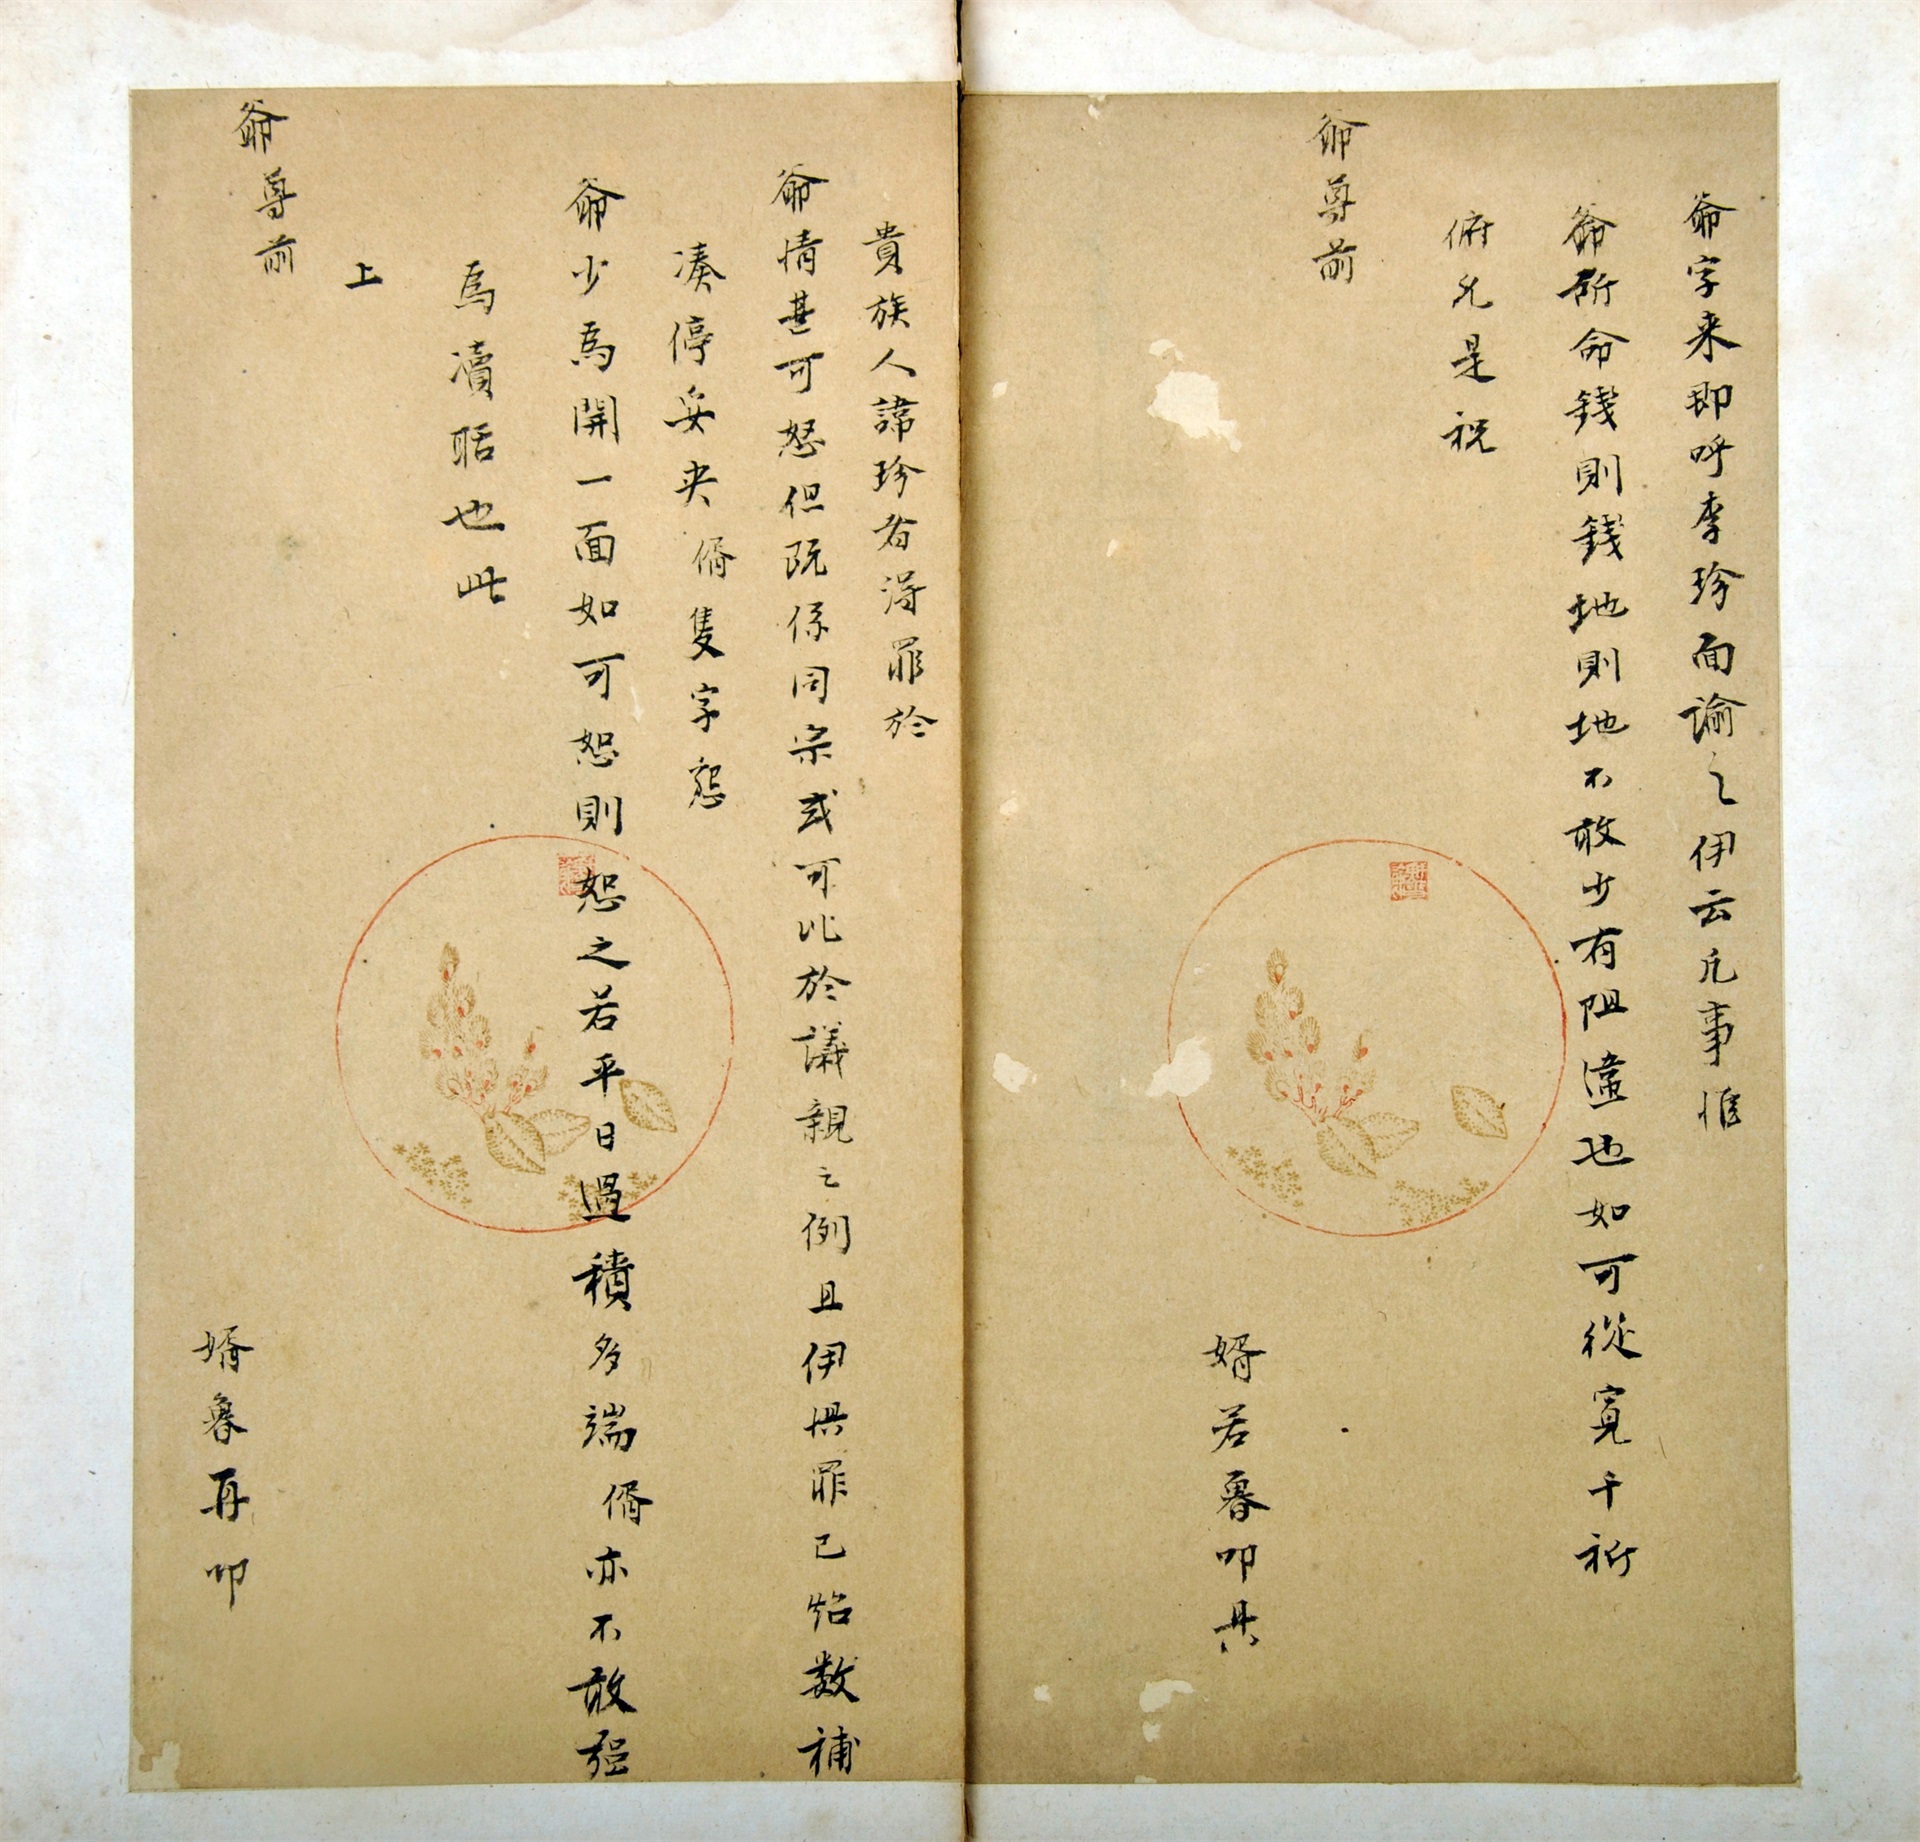 爺字来即呼李珍面諭之伊云凡事惟
爺所命錢則錢地則地不敢少有阻違也如可從寬千祈
俯允是祝
爺尊前
婿若魯叩具
貴族人諱珍者得罪於
爺情甚可怒但既係同宗或可比於議親之例且伊俱罪已照数補
湊停妥央婿隻字懇
爺少為開一面如可恕則恕之若平日過積多端婿亦不敢强
為瀆聒也此
上
爺尊前
婿魯再叩